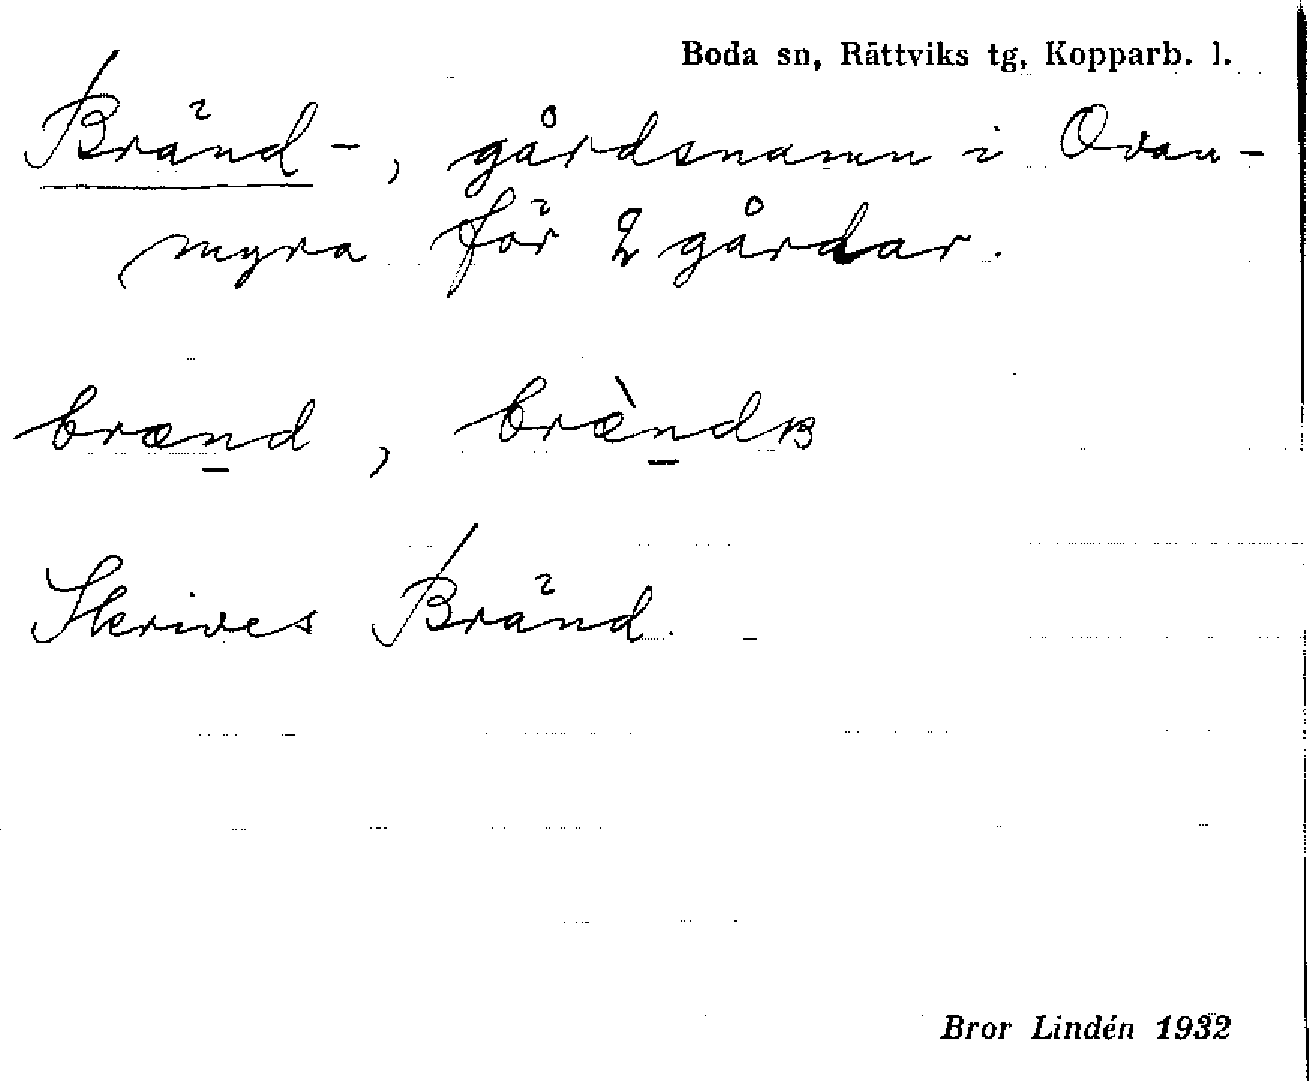 Boda sn, Rättviks tg, Kopparb. l.
Bränd-, gårdsnamn i Ovan-
myra för 2 gårdar.
brænd, bræ̀ndʙ
Skrives Bränd.
Bror Lindén 1932